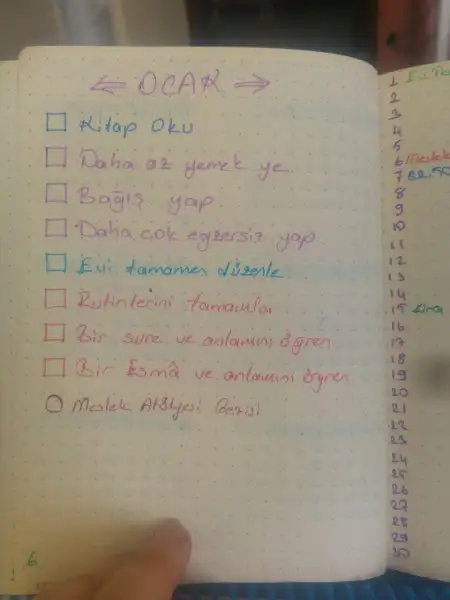 ⇐ OCAK ⇒
Kitap Oku
Daha az yemek ye
Bağış yap
Daha çok egzersiz yap
Evi tamamen düzenle
Rutinlerini tamamla
Bir sure ve anlamını öğren
Bir Esmâ ve anlamını öğren
Meslek Atölyesi Gezisi
6
1
2
3
4
5
6 Meslek
7
8
9
10
11
12
13
14
15
16
17
18
19
20
21
22
23
24
25
26
27
28
29
30